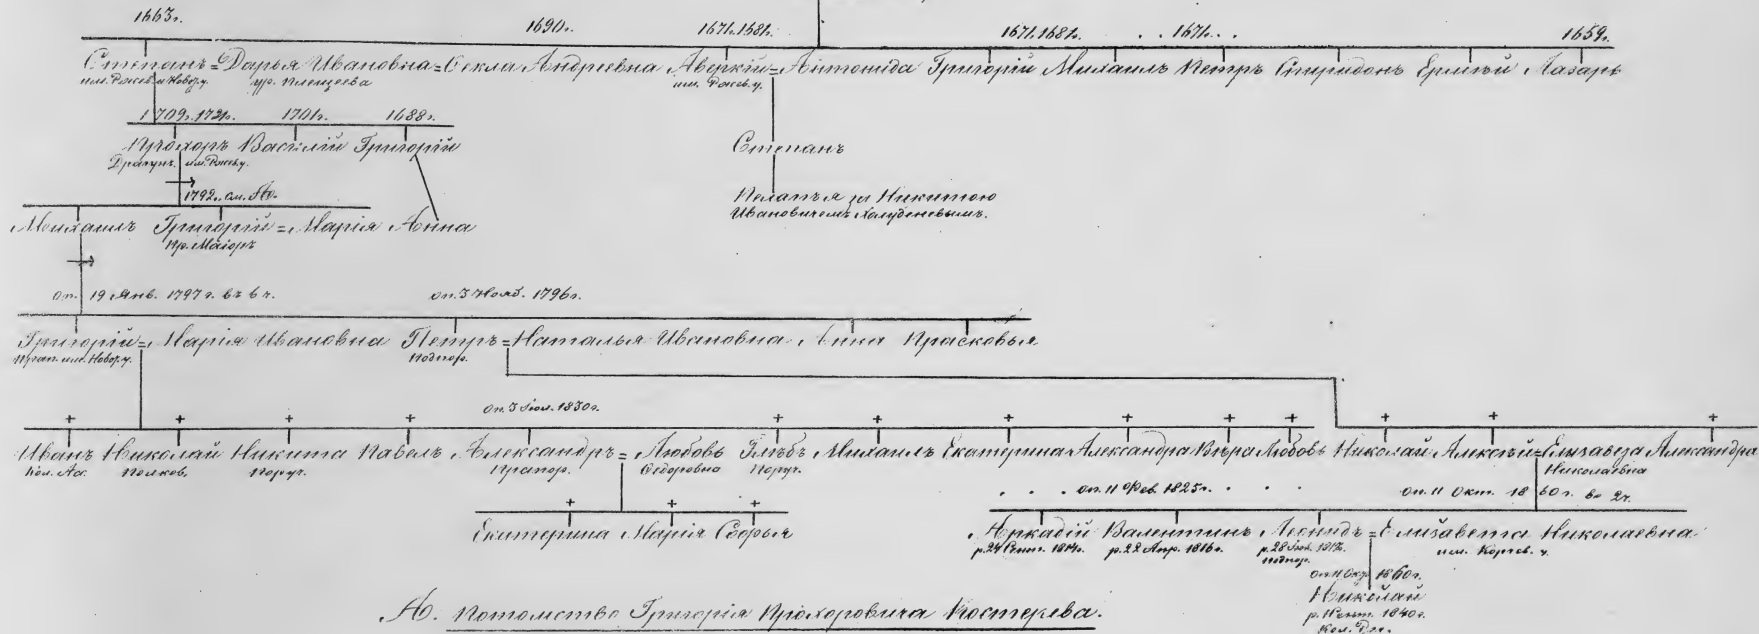 1663г. 1690г. 1671г. 1681г. 1671. 1682г. 1671г. 1659г.
Степанъ = Дарья Ивановна = Фекла Андреевна Аверкiй = Антонида Григорiй Михаилъ Петръ Спиридонъ Ермiй Лазарь
ур. Плещеева
1709г. 1721г. 1701г. 1688г.
Прохоръ Василiй Григорiй
Драгунъ.
Степанъ
1792. см. Ю.
Пелагея за Никитою
Ивановичемъ
Михаилъ Григорiй = Марiя Анна
Пр. Маiоръ
оп. 19 Янв. 1797 г. въ 6 ч. оп. 3 Нояб. 1796г.
Григорiй = Марiя Ивановна Петръ = Наталья Ивановна Анна Прасковья
Подпор.
оп. 3 1830г.
Иванъ Николай Никита Павелъ Александръ = Любовь Глѣбъ Михаилъ Екатерина Александра Вѣра Любовь Николай Алексѣй = Елизавета Александра
Кол. Ас. Полков. Поруч. Прапор. Ѳедоровна Поруч. Николаевна
оп. 11 Фев. 1825г. оп. 11 Окт. 1860г. во 2ч.
Екатерина Марiя Софья
Аркадiй Валентинъ Леонидъ = Елизавета Николаевна
р. 24 Сент. 1814г. р. 22 Апр. 1816г. р. 28 подпор. им. Корчев. у.
1860г.
Николай
1840г.
Ю. Потомство Григорiя Прохоровича Костерева.